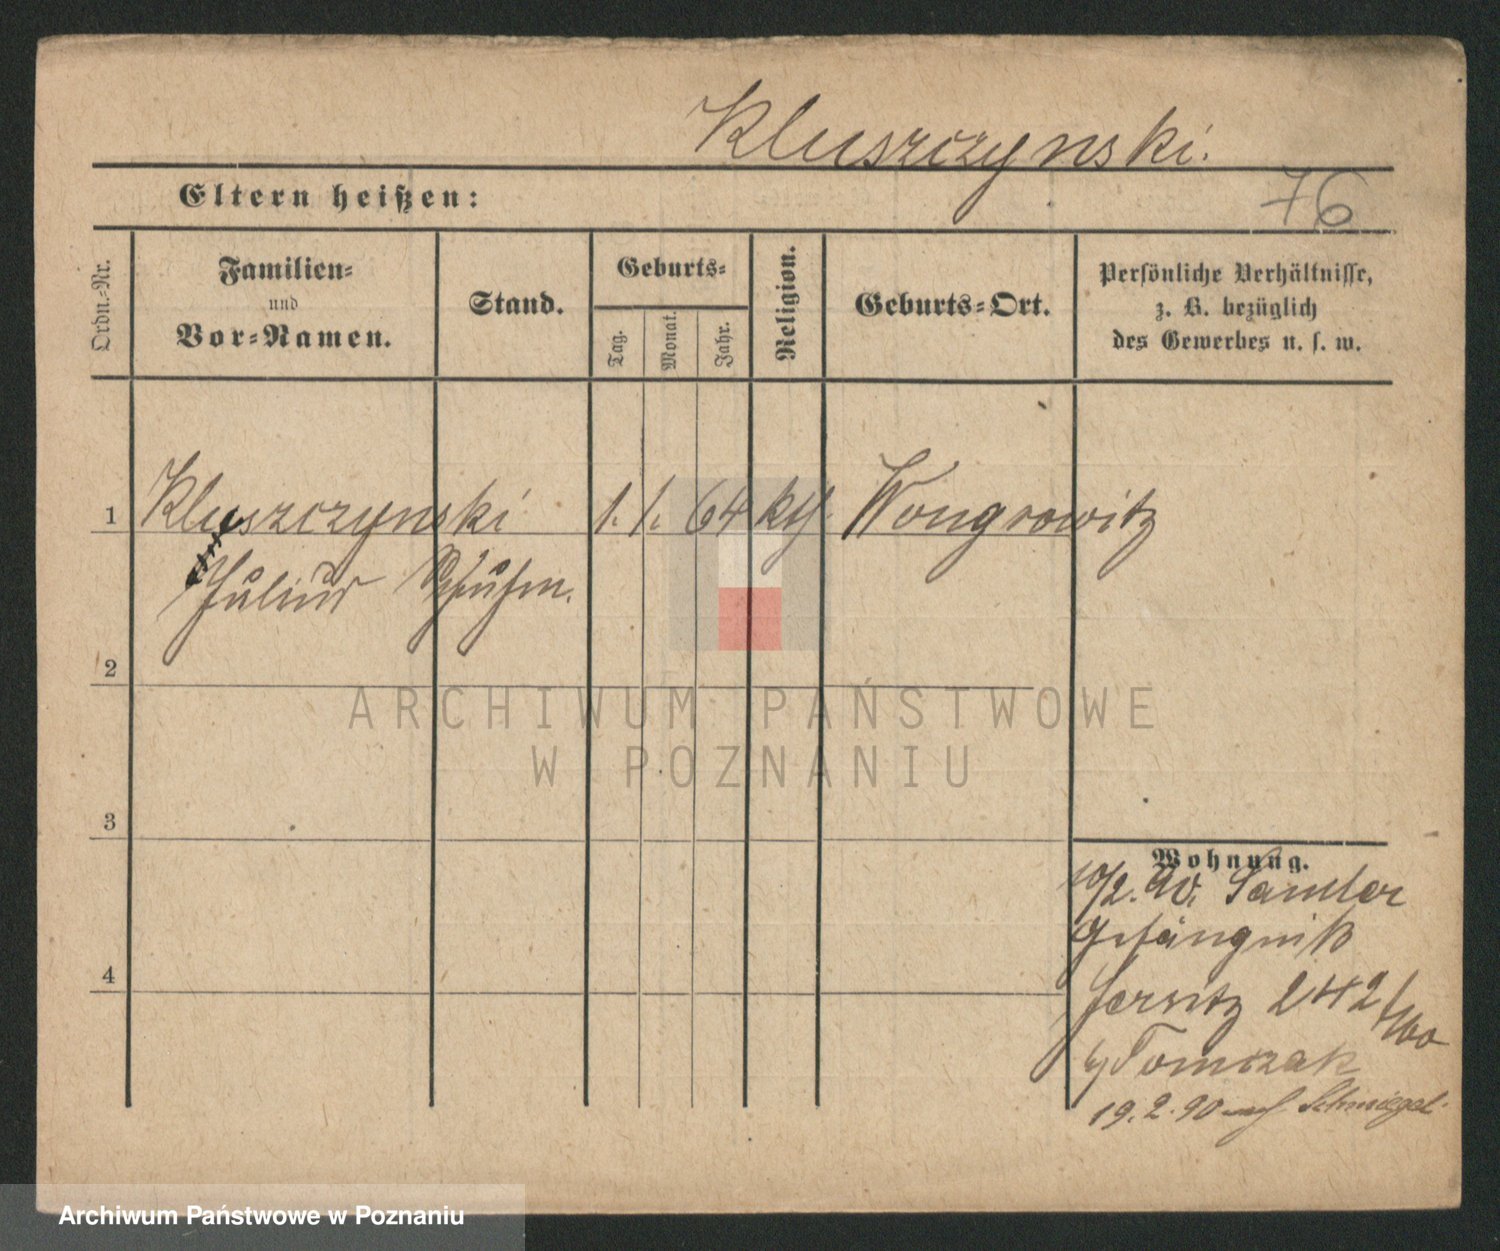 Kluszczynski.
Eltern heißen:
76
Ordn.-Nr.
Familien-
und
Vor-Namen.
Stand.
Geburts-
Tag.
Monat.
Jahr.
Religion.
Geburts-Ort.
Persönliche Verhältnisse,
z. B. bezüglich
des Gewerbes u. s. w.
1 Kluszczynski 1. 1. 64 kth. Wongrowitz
Julius Schuhm.
2
ARCHIWUM PAŃSTWOWE
W POZNANIU
3
Wohnung.
10/2. 90.
Gefängniß
Jersitz 242
b/ Tomczak
19.2.90 nach Schmiegel.
4
Archiwum Państwowe w Poznaniu